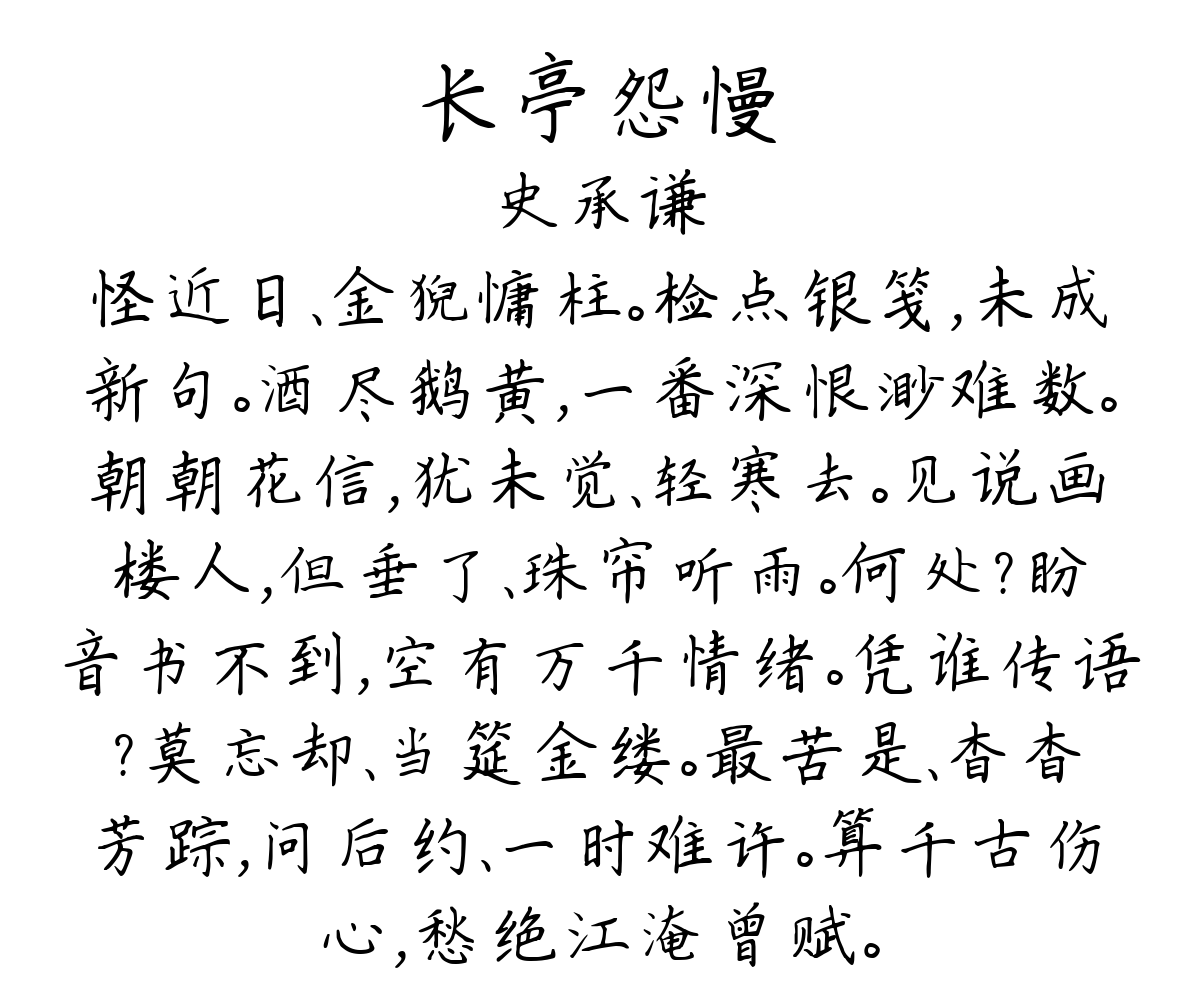 长亭怨慢
史承谦
怪近日、金猊慵柱。检点银笺,未成
新句。酒尽鹅黄,一番深恨渺难数。
朝朝花信,犹未觉、轻寒去。见说画
楼人,但垂了、珠帘听雨。何处?盼
音书不到,空有万千情绪。凭谁传语
?莫忘却、当筵金缕。最苦是、杳杳
芳踪,问后约、一时难许。算千古伤
心,愁绝江淹曾赋。